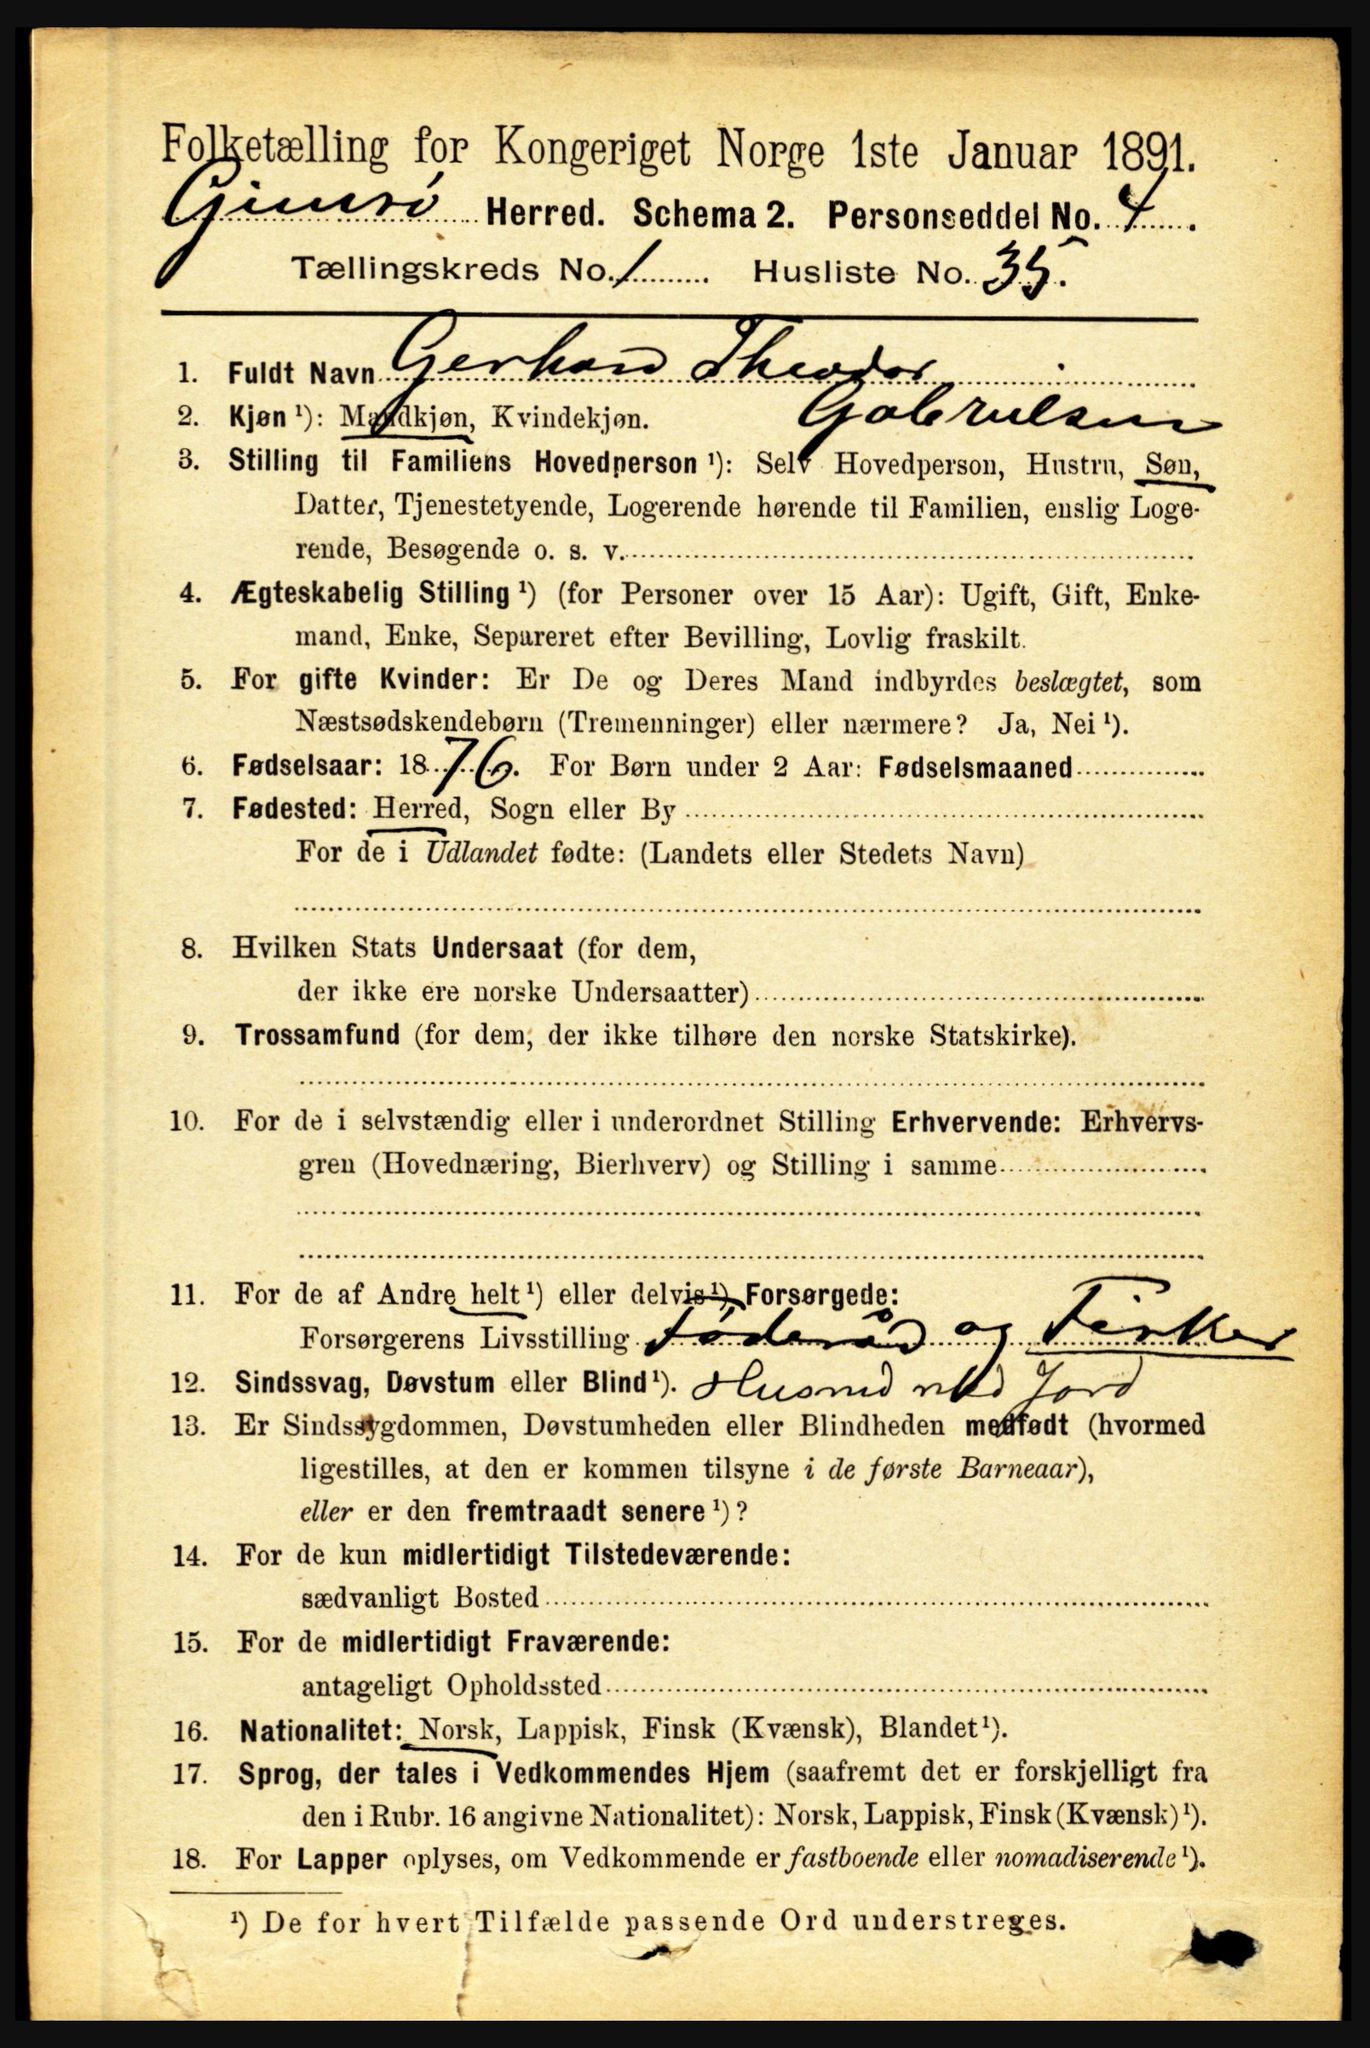 Folketælling for Kongeriget Norge 1ste Januar 1891.
Gimsø Herred. Schema 2. Personseddel No. 4.
Tællingskreds No. 1 Husliste No. 35.
1. Fuldt Navn Gerhard Theodor
Gabrielsen
2. Kjøn ¹): Mandkjøn, Kvindekjøn.
3. Stilling til Familiens Hovedperson ¹): Selv Hovedperson, Hustru, Søn,
Datter, Tjenestetyende, Logerende hørende til Familien, enslig Loge-
rende, Besøgende o. s. v.
4. Ægteskabelig Stilling ¹) (for Personer over 15 Aar): Ugift, Gift, Enke-
mand, Enke, Separeret efter Bevilling, Lovlig fraskilt.
5. For gifte Kvinder: Er De og Deres Mand indbyrdes beslægtet, som
Næstsødskendebørn (Tremenninger) eller nærmere? Ja, Nei ¹).
6. Fødselsaar: 1876. For Børn under 2 Aar: Fødselsmaaned
7. Fødested: Herred, Sogn eller By
For de i Udlandet fødte: (Landets eller Stedets Navn)
8. Hvilken Stats Undersaat (for dem,
der ikke ere norske Undersaatter)
9. Trossamfund (for dem, der ikke tilhøre den norske Statskirke).
10. For de i selvstændig eller i underordnet Stilling Erhvervende: Erhvervs-
gren (Hovednæring, Bierhverv) og Stilling i samme
11. For de af Andre helt ¹) eller delvis ¹) Forsørgede:
Forsørgerens Livsstilling Føderåd og Fisker
12. Sindssvag, Døvstum eller Blind ¹). Husmd med Jord
13. Er Sindssygdommen, Døvstumheden eller Blindheden medfødt (hvormed
ligestilles, at den er kommen tilsyne i de første Barneaar),
eller er den fremtraadt senere ¹)?
14. For de kun midlertidigt Tilstedeværende:
sædvanligt Bosted
15. For de midlertidigt Fraværende:
antageligt Opholdssted
16. Nationalitet: Norsk, Lappisk, Finsk (Kvænsk), Blandet ¹).
17. Sprog, der tales i Vedkommendes Hjem (saafremt det er forskjelligt fra
den i Rubr. 16 angivne Nationalitet): Norsk, Lappisk, Finsk (Kvænsk) ¹).
18. For Lapper oplyses, om Vedkommende er fastboende eller nomadiserende ¹).
¹) De for hvert Tilfælde passende Ord understreges.